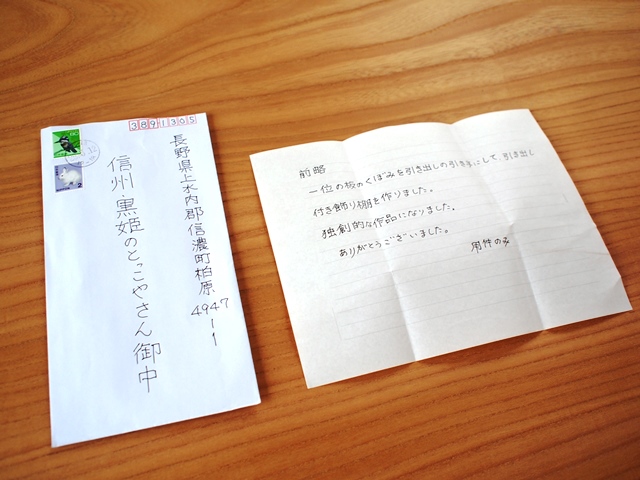 3891305
長野県上水内郡信濃町柏原
4947-1
信州・黒姫のとっこやさん御中
80
2
前略
一位の板のくぼみを引き出しの引き手にして、引き出し
付き飾り棚を作りました。
独創的な作品になりました。
ありがとうございました。
用件のみ